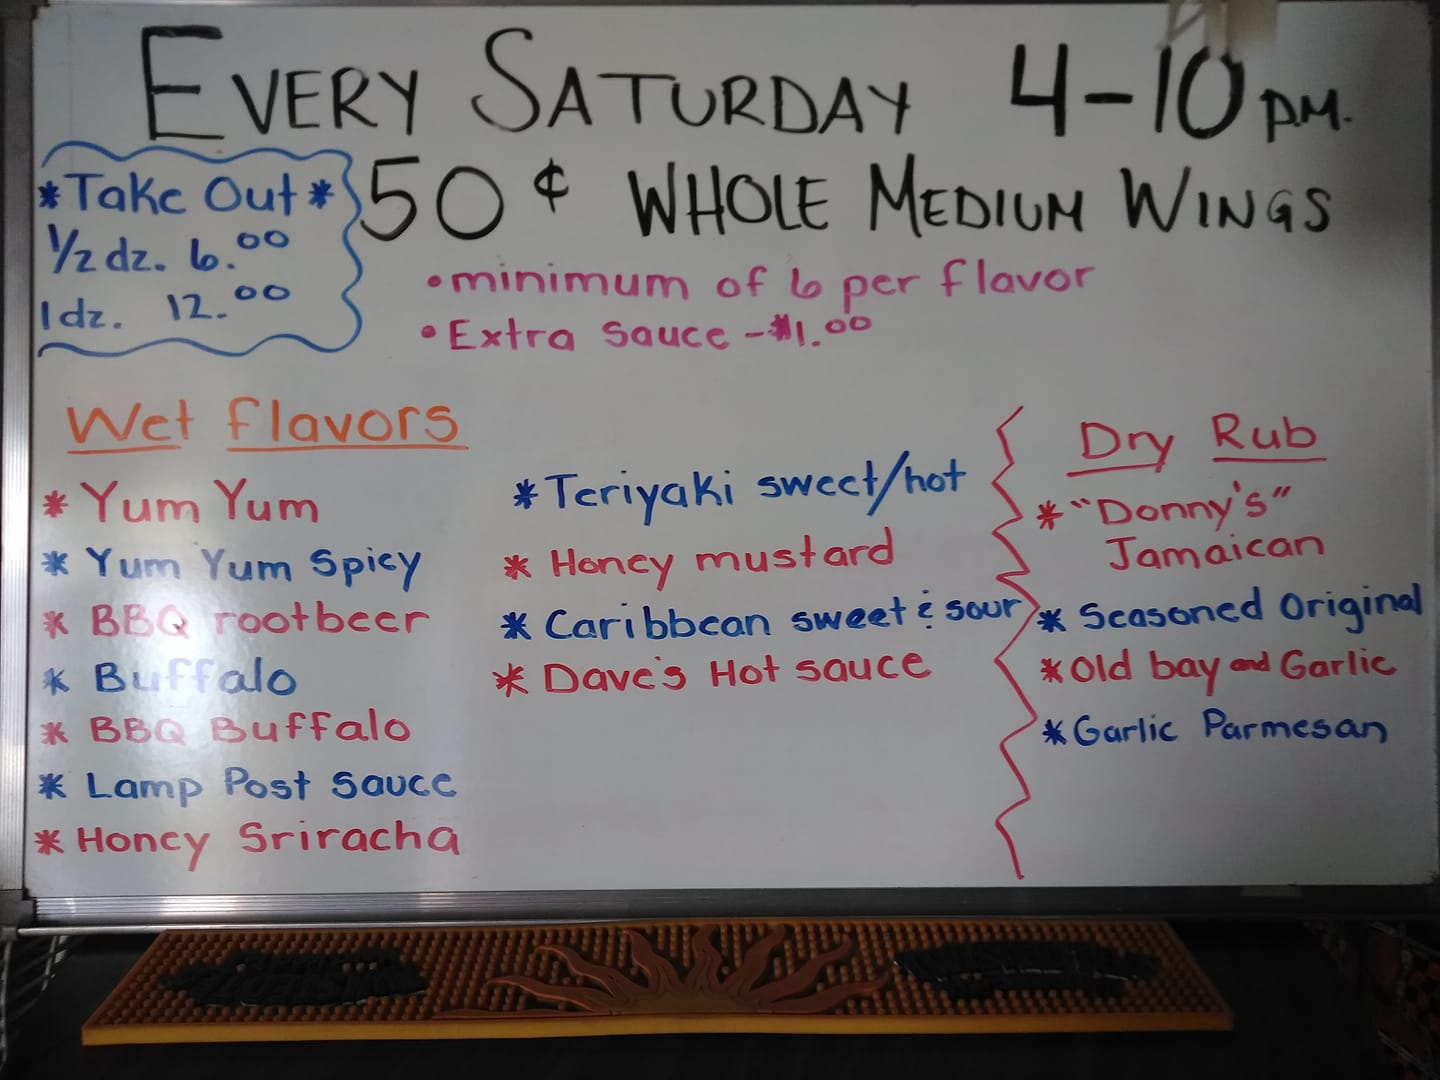 EVERY SATURDAY 4-10 P.M.
50¢ WHOLE MEDIUM WINGS
*Take Out*
1/2 dz. 6.00
1 dz. 12.00
•minimum of 6 per flavor
•Extra sauce -$1.00
Wet flavors
* Yum Yum
* Yum Yum Spicy
* BBQ rootbeer
* Buffalo
* BBQ Buffalo
* Lamp Post Sauce
* Honey Sriracha
*Teriyaki sweet/hot
* Honey mustard
* Caribbean sweet & sour
* Dave's Hot sauce
Dry Rub
*"Donny's"
Jamaican
* Seasoned Original
*Old bay and Garlic
*Garlic Parmesan